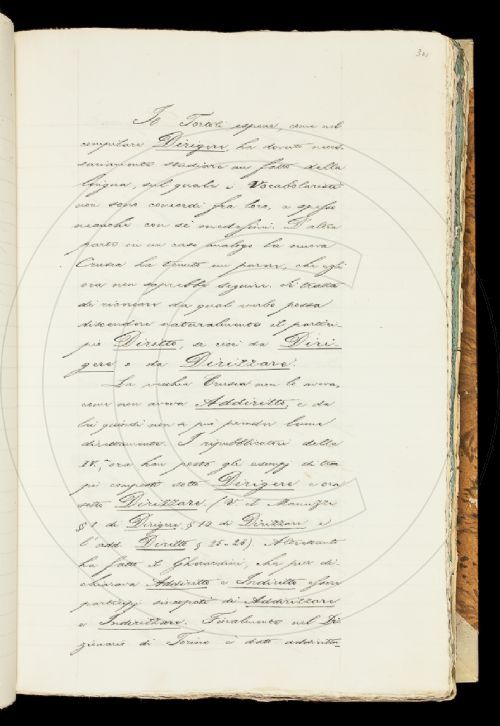 301
Il Tortoli espone, come nel
compilare Dirigere, ha dovuto neces-
sariamente studiare un fatto della
lingua, sul quale i Vocabolaristi
non sono concordi fra loro, e spesso
neanche con sé medesimi. D'altra
parte in un caso analogo la nuova
Crusca ha tenuto un parere, che egli
ora non saprebbe seguire. Si tratta
di ricercare da qual verbo possa
discendere naturalmente il partici-
pio Diretto, se cioè da Diri-
gere o da Dirizzare.
La vecchia Crusca non lo aveva,
come non aveva Addiretto, e da
lei quindi non si può prender lume
direttamente. I ripubblicatori della
IV.ª ora han posto gli esempj di tem-
pi composti sotto Dirigere e ora
sotto Dirizzare, (V. il Manuzzi
§ 1 di Dirigere, § 14 di Dirizzare e
l'add. Diretto § 25-26). Altrettanto
ha fatto il Gherardini, che pur di-
chiarava Addiretto e Indiretto essere
participj sincopati di Addirizzare
e Indirizzare. Finalmente nel Di-
zionario di Torino è dato addiritto